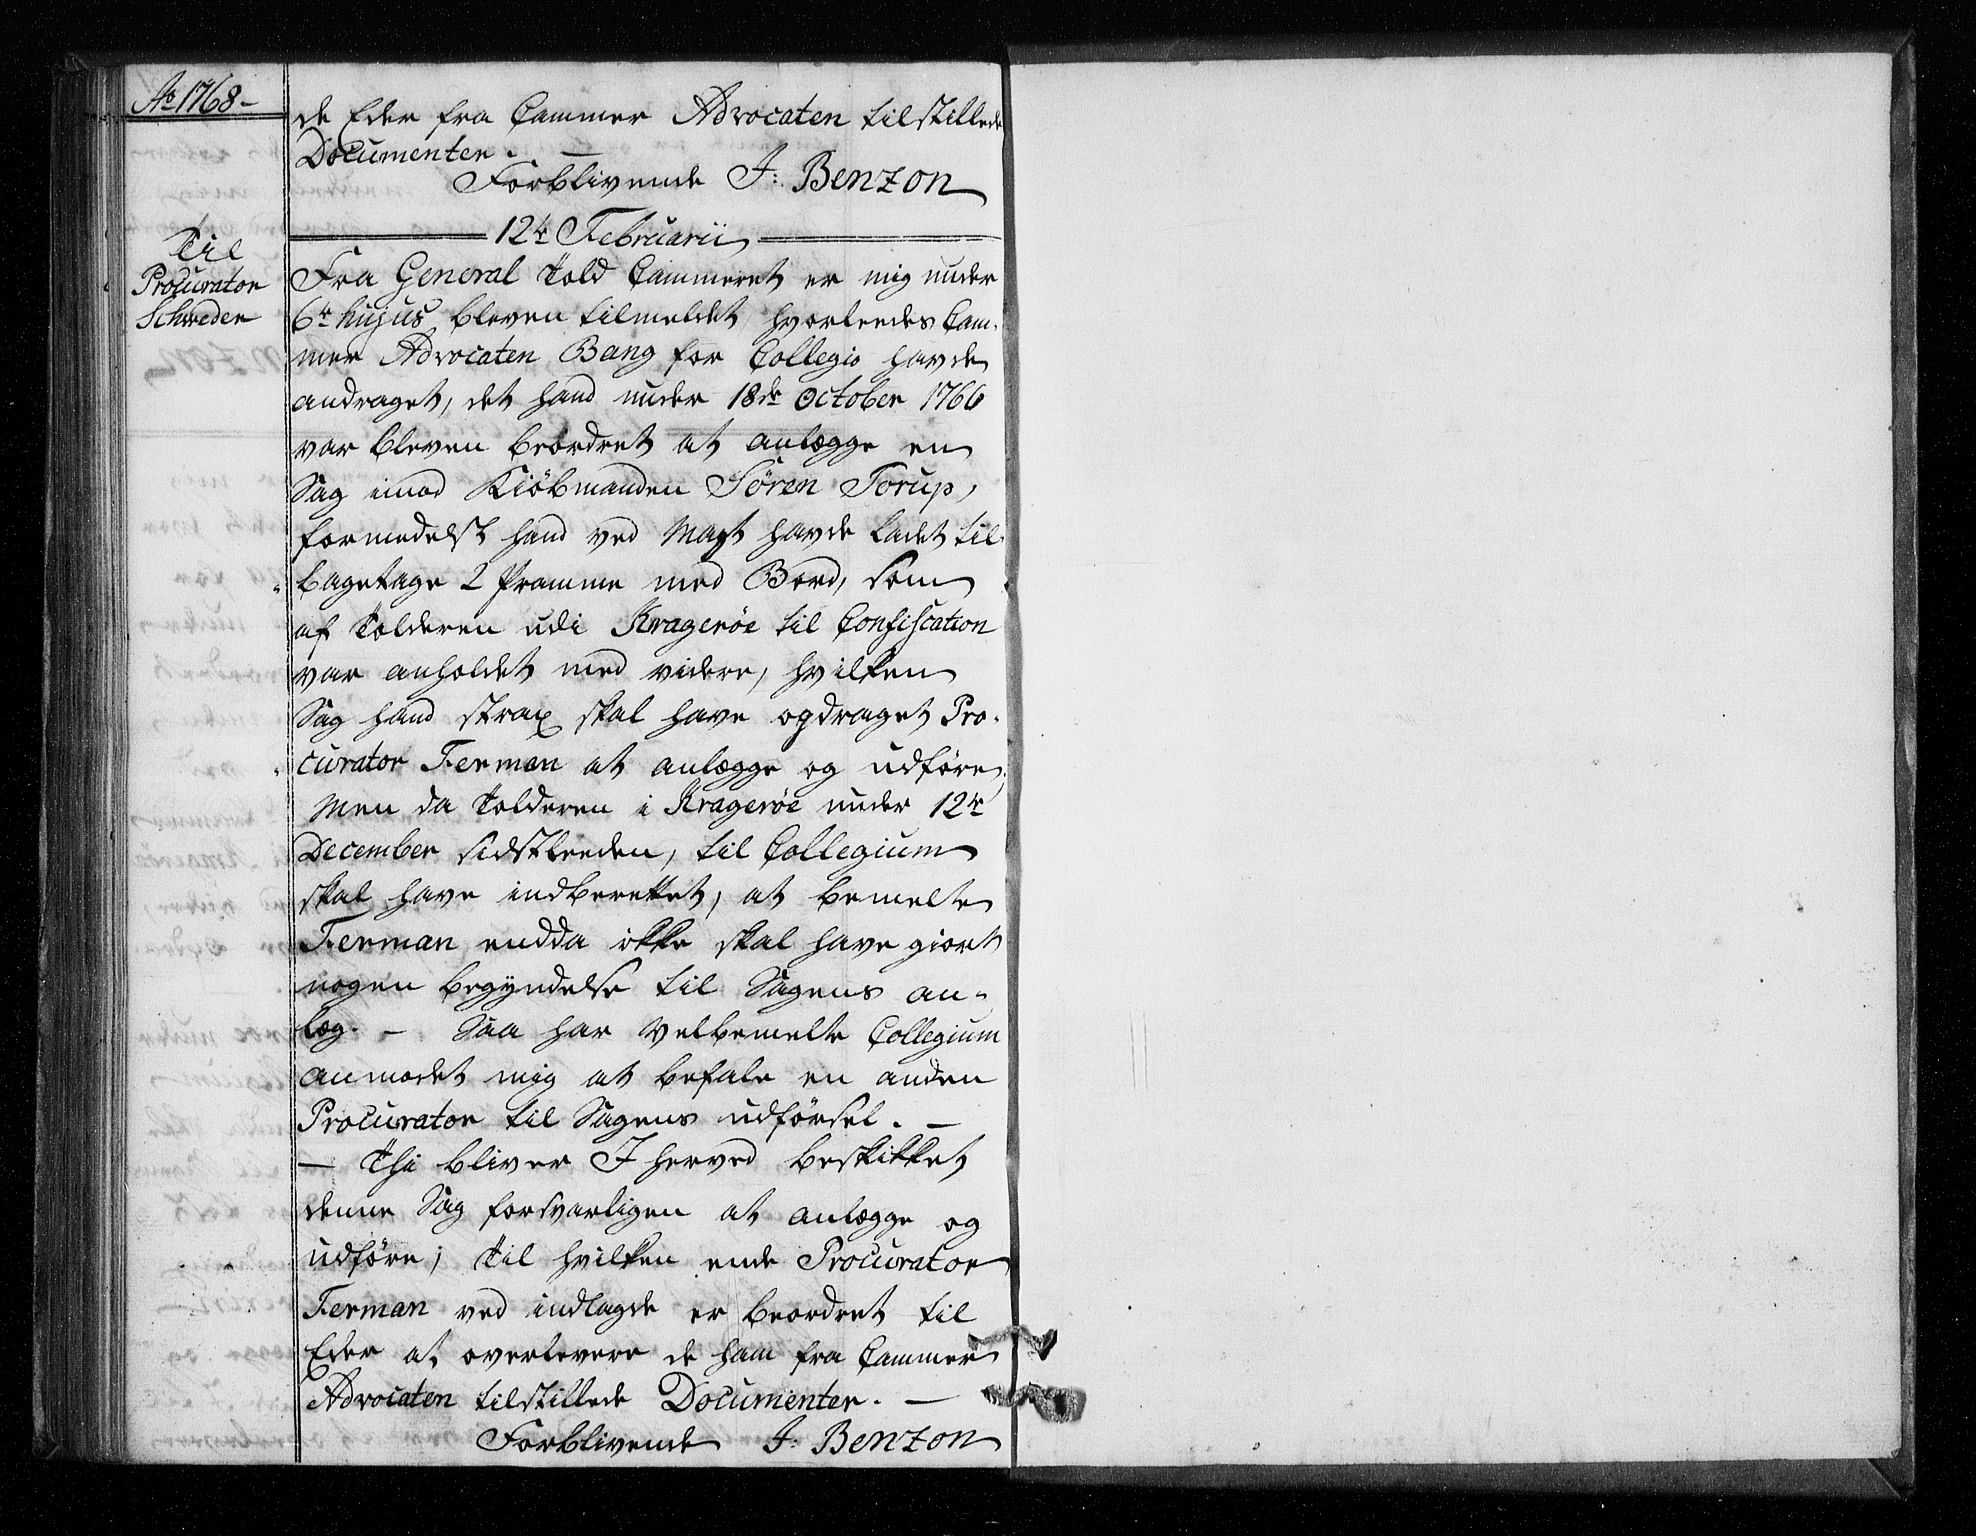 Ao 1768 –
de Eder fra Cammer Advocaten tilstillede
Documenter. –
Forblivende J: Benzon
12te Februarii
Til
Procurator
Schweder
Fra General Told Cammeret er mig under
6te hujus bleven tilmeldet, hvorleedes Cam-
mer Advocaten Bang for Collegio havde
andraget, det hand under 18de October 1766
var bleven beordret at anlægge en
Sag imod Kiöbmanden Sören Torup,
formedelst hand ved Magt havde ladet til-
bagetage 2 Pramme med Bord, som
af Tolderen udi Kragerøe til Confiscation
var anholdet med videre, hvilken
Sag hand strax skal have opdraget Pro-
curator Ferman at anlægge og udføre,
Men da Tolderen i Kragerøe under 12te
December sidstleeden, til Collegium
skal have indberettet, at bemelte
Ferman endda ikke skal have giort
nogen begyndelse til Sagens an-
læg. – Saa har Velbemelte Collegium
anmodet mig at befale en anden
Procurator til Sagens udførsel. –
– Thi bliver I herved beskikket
denne Sag forsvarligen at anlægge og
udføre; Til hvilken ende Procurator
Ferman ved indlagde er beordret til
Eder at overlevere de ham fra Cammer
Advocaten tilstillede Documenter. –
Forblivende J: Benzon